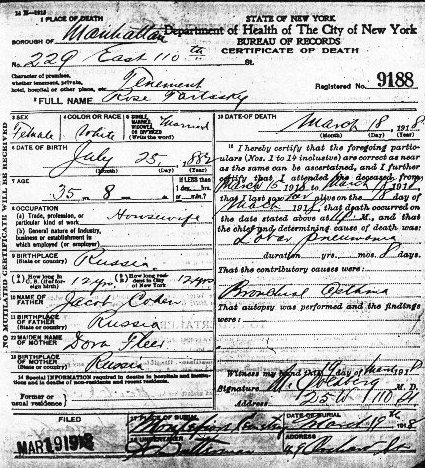 1 PLACE OF DEATH
STATE OF NEW YORK
Department of Health of The City of New York
BUREAU OF RECORDS
CERTIFICATE OF DEATH
BOROUGH OF Manhattan
No. 229 East 110th St.
Character of premises,
whether tenement, private,
hotel, hospital or other place, etc. Tenement
Registered No. 9188
2 FULL NAME Rose
3 SEX Female
4 COLOR OR RACE White
5 SINGLE, MARRIED, WIDOWED OR DIVORCED (Write the word) Married
6 DATE OF BIRTH
July 25, 1882
(Month) (Day) (Year)
7 AGE
35 yrs. 8
8 OCCUPATION
(a) Trade, profession, or particular kind of work Housewife
(b) General nature of industry, business or establishment in which employed (or employer)
9 BIRTHPLACE (State or country) Russia
12 yrs
12 yrs
10 NAME OF FATHER Jacob Cohen
11 BIRTHPLACE OF FATHER (State or country) Russia
12 MAIDEN NAME OF MOTHER Dora
13 BIRTHPLACE OF MOTHER (State or country) Russia
14 Special INFORMATION required in deaths in hospitals and institutions and in deaths of non-residents and recent residents.
Former or usual residence
FILED
MAR 19 1918
NO MUTILATED CERTIFICATE WILL BE RECEIVED
15 DATE OF DEATH
March 18 1918
(Month) (Day) (Year)
16 I hereby certify that the foregoing particulars (Nos. 1 to 14 inclusive) are correct as near as the same can be ascertained, and I further certify that I attended the deceased from
March 15 1918 to March 18 1918
that I last saw her alive on the 18 day of
March 1918, that death occurred on
the date stated above at M., and that
the chief and determining cause of death was:
Lobar Pneumonia
duration yrs. mos. 8 days
That the contributory causes were:
Bronchial Asthma
That autopsy was performed and the findings were:
Witness my hand this 19 day of
Signature M. Goldberg M. D.
Address 25 W 110 St
17 PLACE OF BURIAL
Montefiore
DATE OF BURIAL
March 19 1918
18 UNDERTAKER
ADDRESS